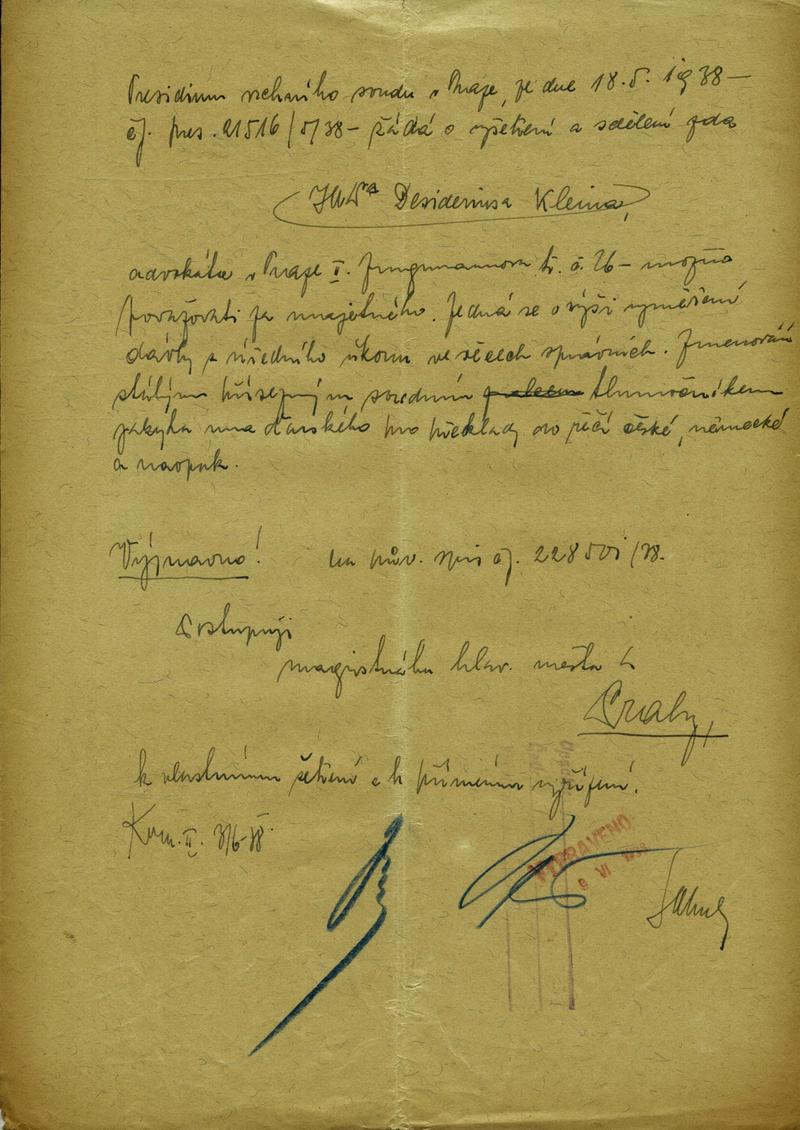 Presidium vrchního soudu v Praze, ze dne 18.5. 1938 –
čj. pres. 21516/5/38 – žádá o vyšetření a sdělení zda
JUDra Desideriusa Kleina,
advokáta v Praze II. Jungmannova tř. č. 26 – možno
považovati za majetného. Jedná se o výši vyměření
dávky z úředního úkonu ve věcech správních. Jmenován
stálým přísežným soudním tlumočníkem
jazyka maďarského pro překlady do řeči české, německé
a naopak.
Vyjmavno! na pův. spis čj. 22850 /38.
Postupuji
magistrátu hlav. města
Prahy,
k vlastnímu šetření a k přímému vyřízení.
Kom. II. 3/6-38
VYPRAVENO
9 VI 1938